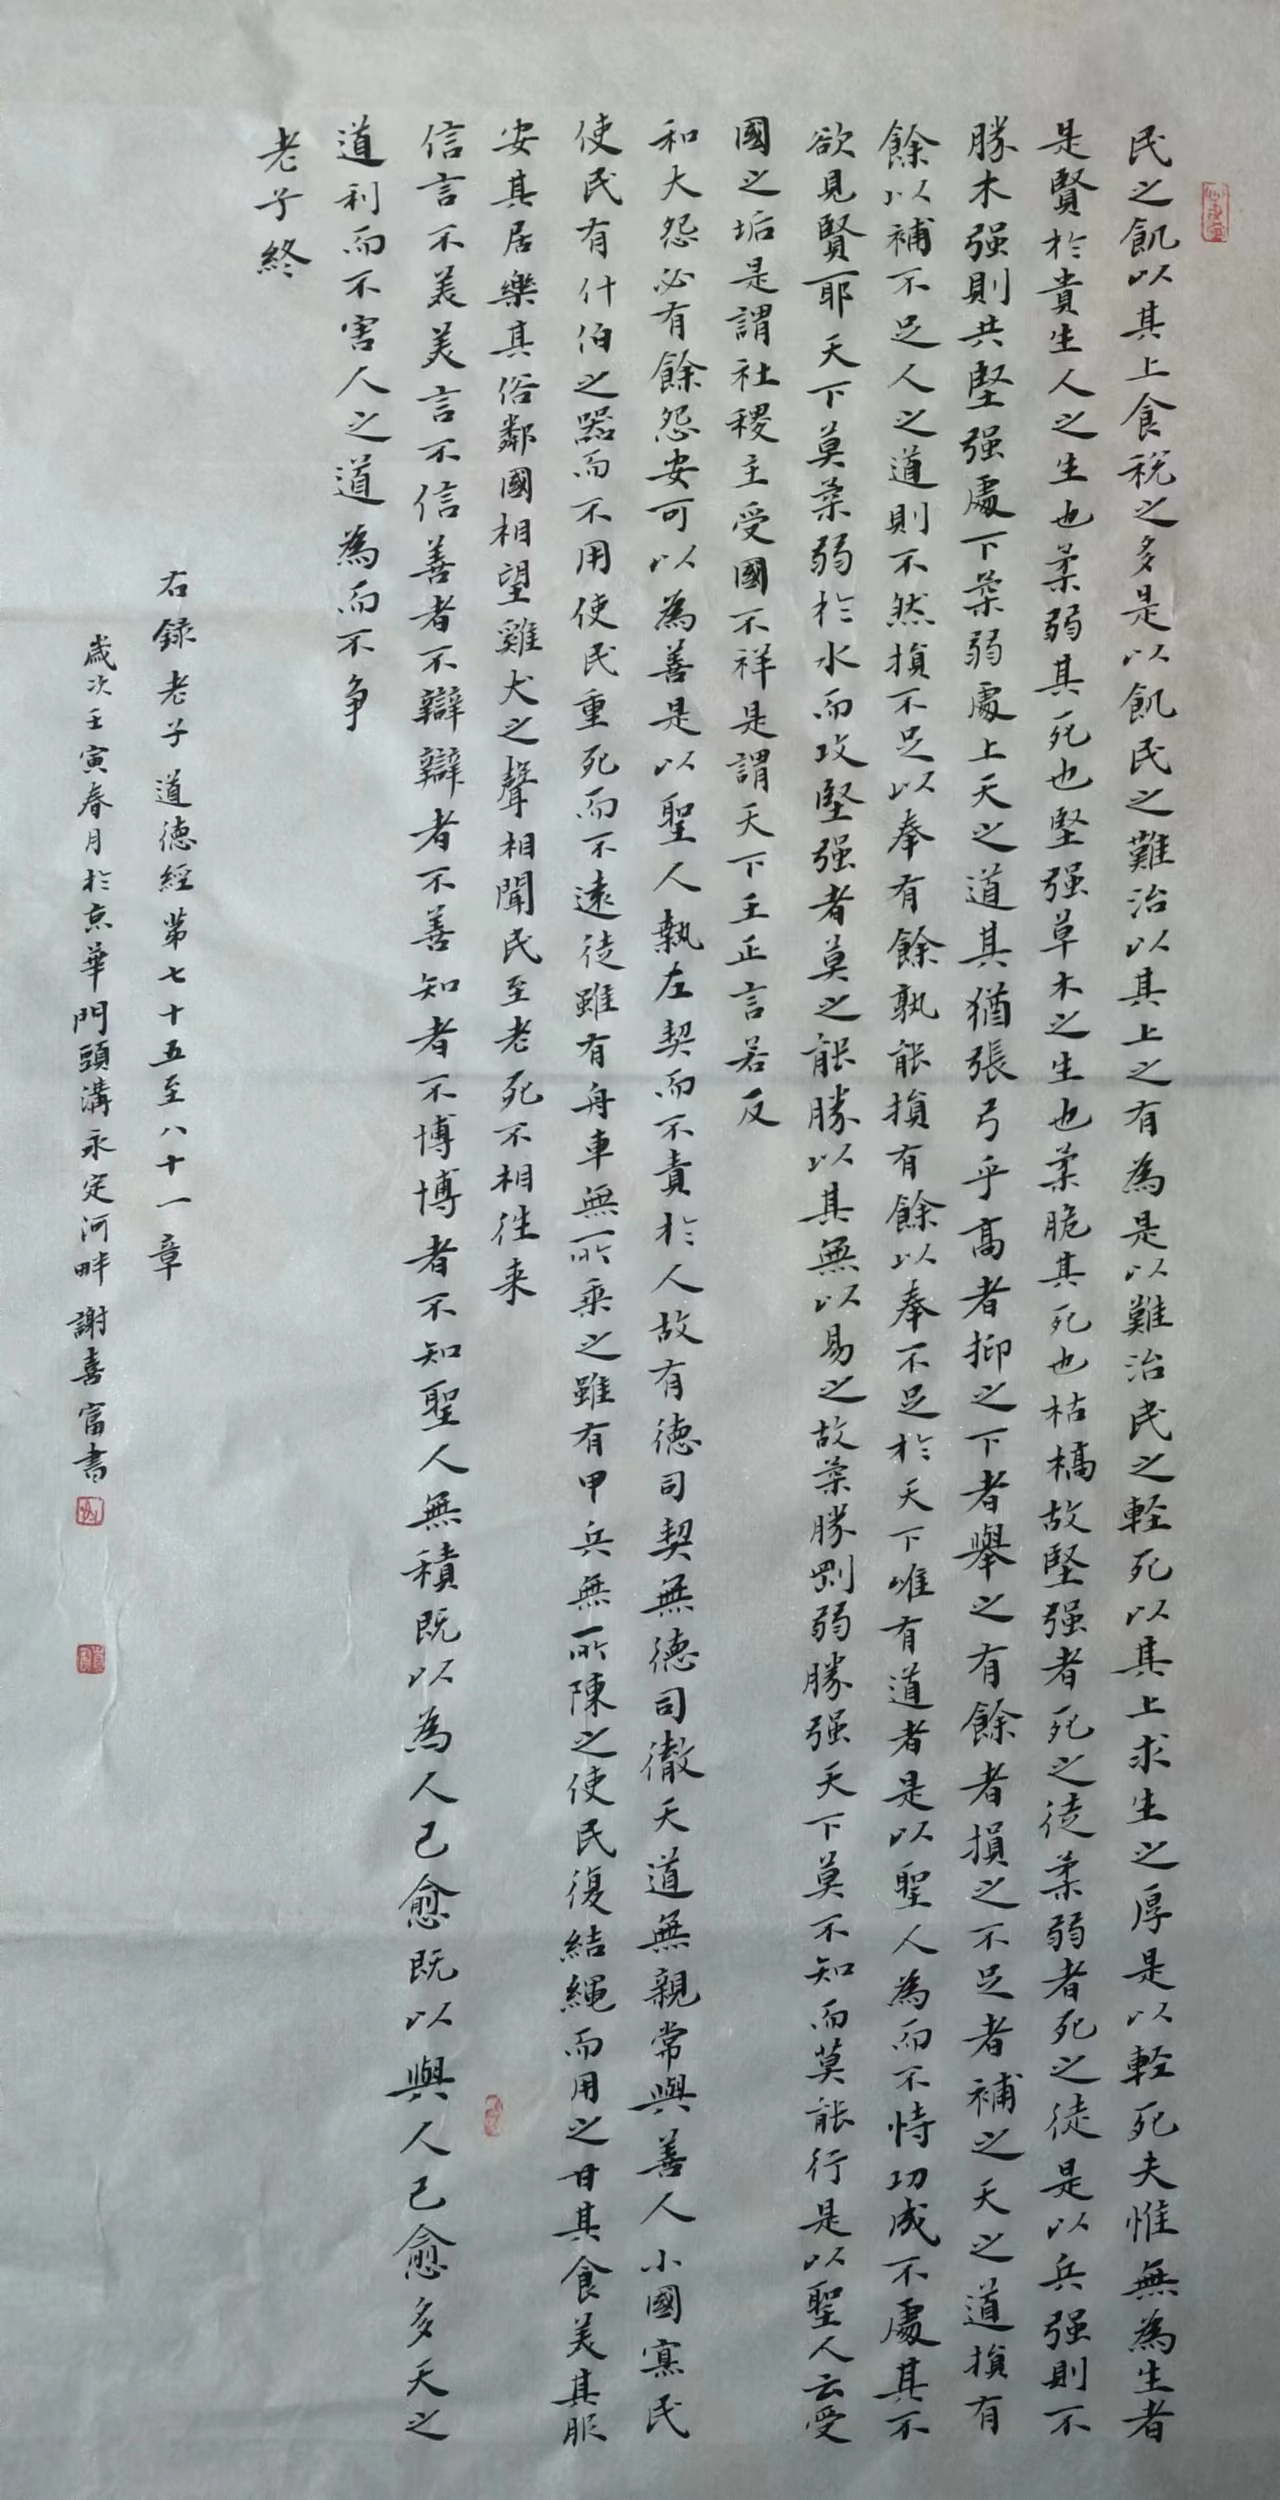 民之飢以其上食稅之多是以飢民之難治以其上之有為是以難治民之輕死以其上求生之厚是以輕死夫惟無為生者
是賢於貴生人之生也柔弱其死也堅强草木之生也柔脆其死也枯槁故堅强者死之徒柔弱者死之徒是以兵强則不
勝木强則共堅强處下柔弱處上天之道其猶張弓乎高者抑之下者舉之有餘者損之不足者補之天之道損有
餘以補不足人之道則不然損不足以奉有餘孰能損有餘以奉不足於天下唯有道者是以聖人為而不恃功成不處其不
欲見賢耶天下莫柔弱於水而攻堅强者莫之能勝以其無以易之故柔勝剛弱勝强天下莫不知而莫能行是以聖人云受
國之垢是謂社稷主受國不祥是謂天下王正言若反
和大怨必有餘怨安可以為善是以聖人執左契而不責於人故有德司契無德司徹天道無親常與善人小國寡民
使民有什伯之器而不用使民重死而不遠徙雖有舟車無所乘之雖有甲兵無所陳之使民復結繩而用之甘其食美其服
安其居樂其俗鄰國相望雞犬之聲相聞民至老死不相往来
信言不美美言不信善者不辯辯者不善知者不博博者不知聖人無積既以為人己愈既以與人己愈多天之
道利而不害人之道為而不争
老子終
右録老子道德經第七十五至八十一章
歲次壬寅春月於京華門頭溝永定河畔謝喜富書